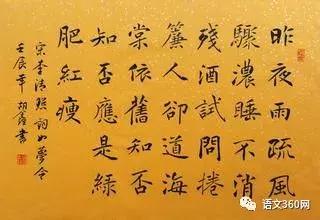 昨夜雨疏風
驟濃睡不消
殘酒試問捲
簾人卻道海
棠依舊知否
知否應是綠
肥紅瘦
宋李清照詞如夢令
壬辰年胡鑫書
语文360网